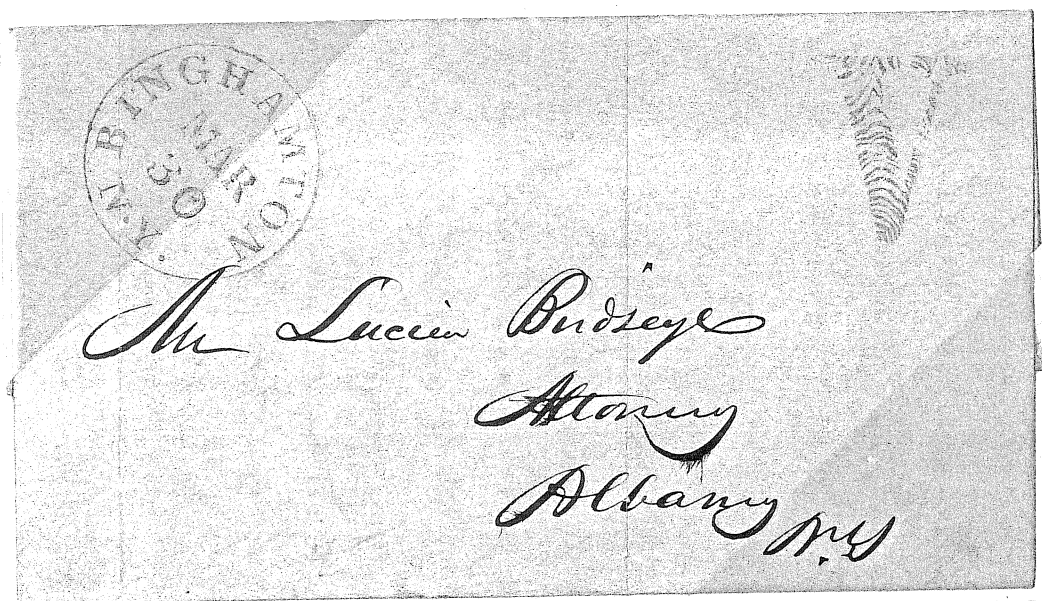 BINGHAMTON N.Y.
MAR
30
V
Mr Lucien Birdseye
Attorney
Albany
N.Y